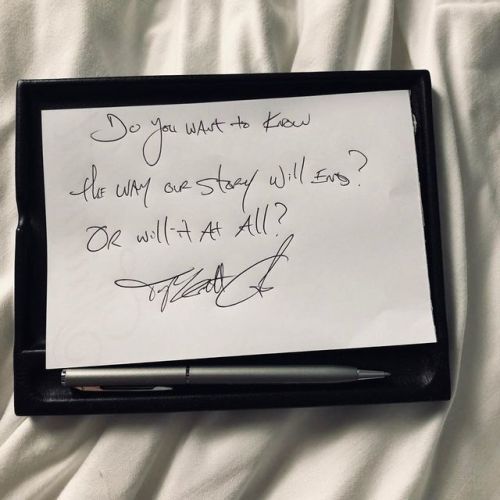 Do You WANT to KNOW
the WAY our story Will END?
OR will it At All?